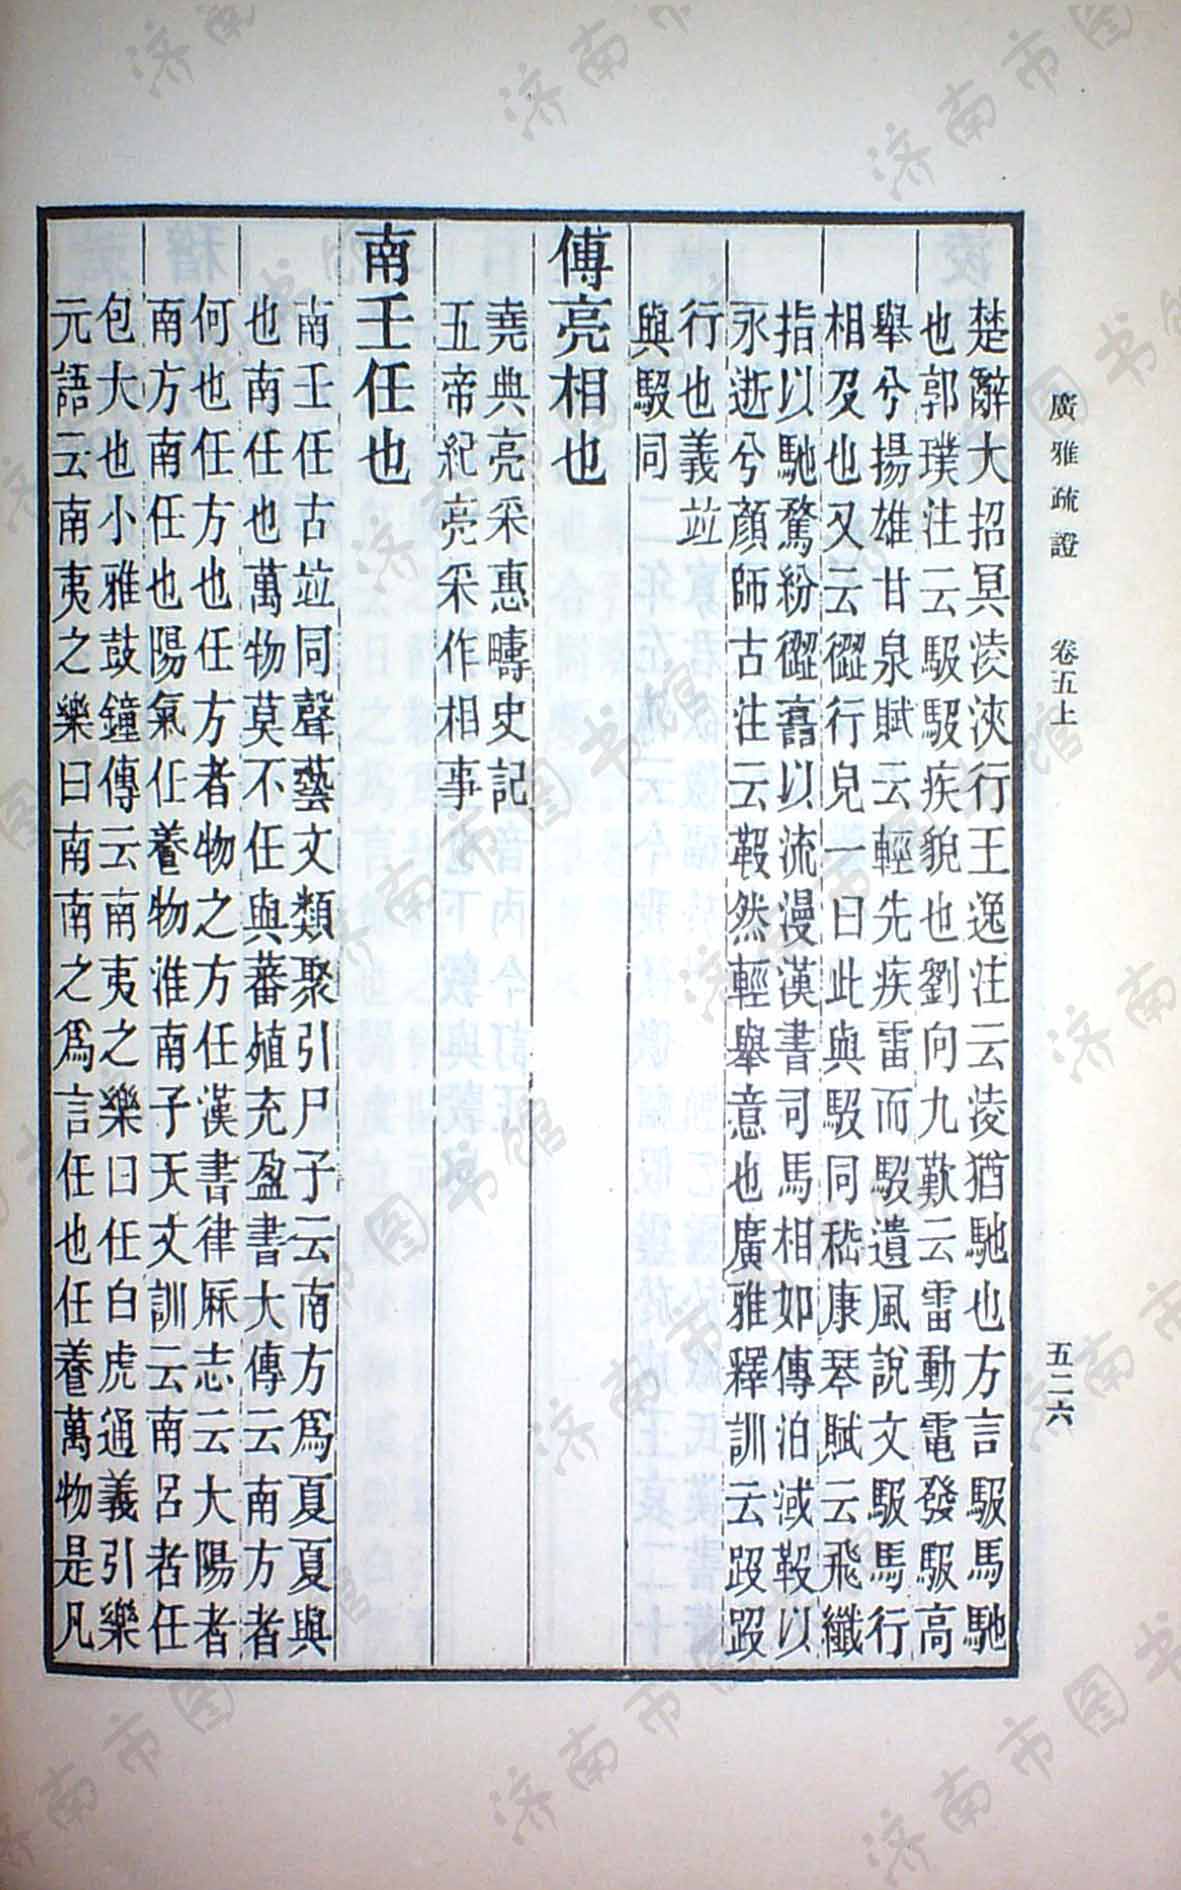 廣雅疏證 卷五上 五二六
楚辭大招冥淩浹行王逸注云淩猶馳也方言馺馬馳
也郭璞注云馺馺疾貌也劉向九歎云雷動電發馺高
舉兮揚雄甘泉賦云輕先疾雷而馺遺風說文馺馬行
相及也又云行皃一曰此與馺同嵇康琴賦云飛纖
指以馳騖紛譶以流漫漢書司馬相如傳汩淢靸以
永逝兮顏師古注云靸然輕舉意也廣雅釋訓云趿趿
行也義竝
與馺同
傅亮相也
堯典亮采惠疇史記
五帝紀亮采作相事
南壬任也
南壬任古竝同聲藝文類聚引尸子云南方爲夏夏與
也南任也萬物莫不任與蕃殖充盈書大傳云南方者
何也任方也任方者物之方任漢書律厤志云大陽者
南方南任也陽氣任養物淮南子天文訓云南呂者任
包大也小雅鼓鐘傳云南夷之樂曰任白虎通義引樂
元語云南夷之樂曰南南之爲言任也任養萬物是凡